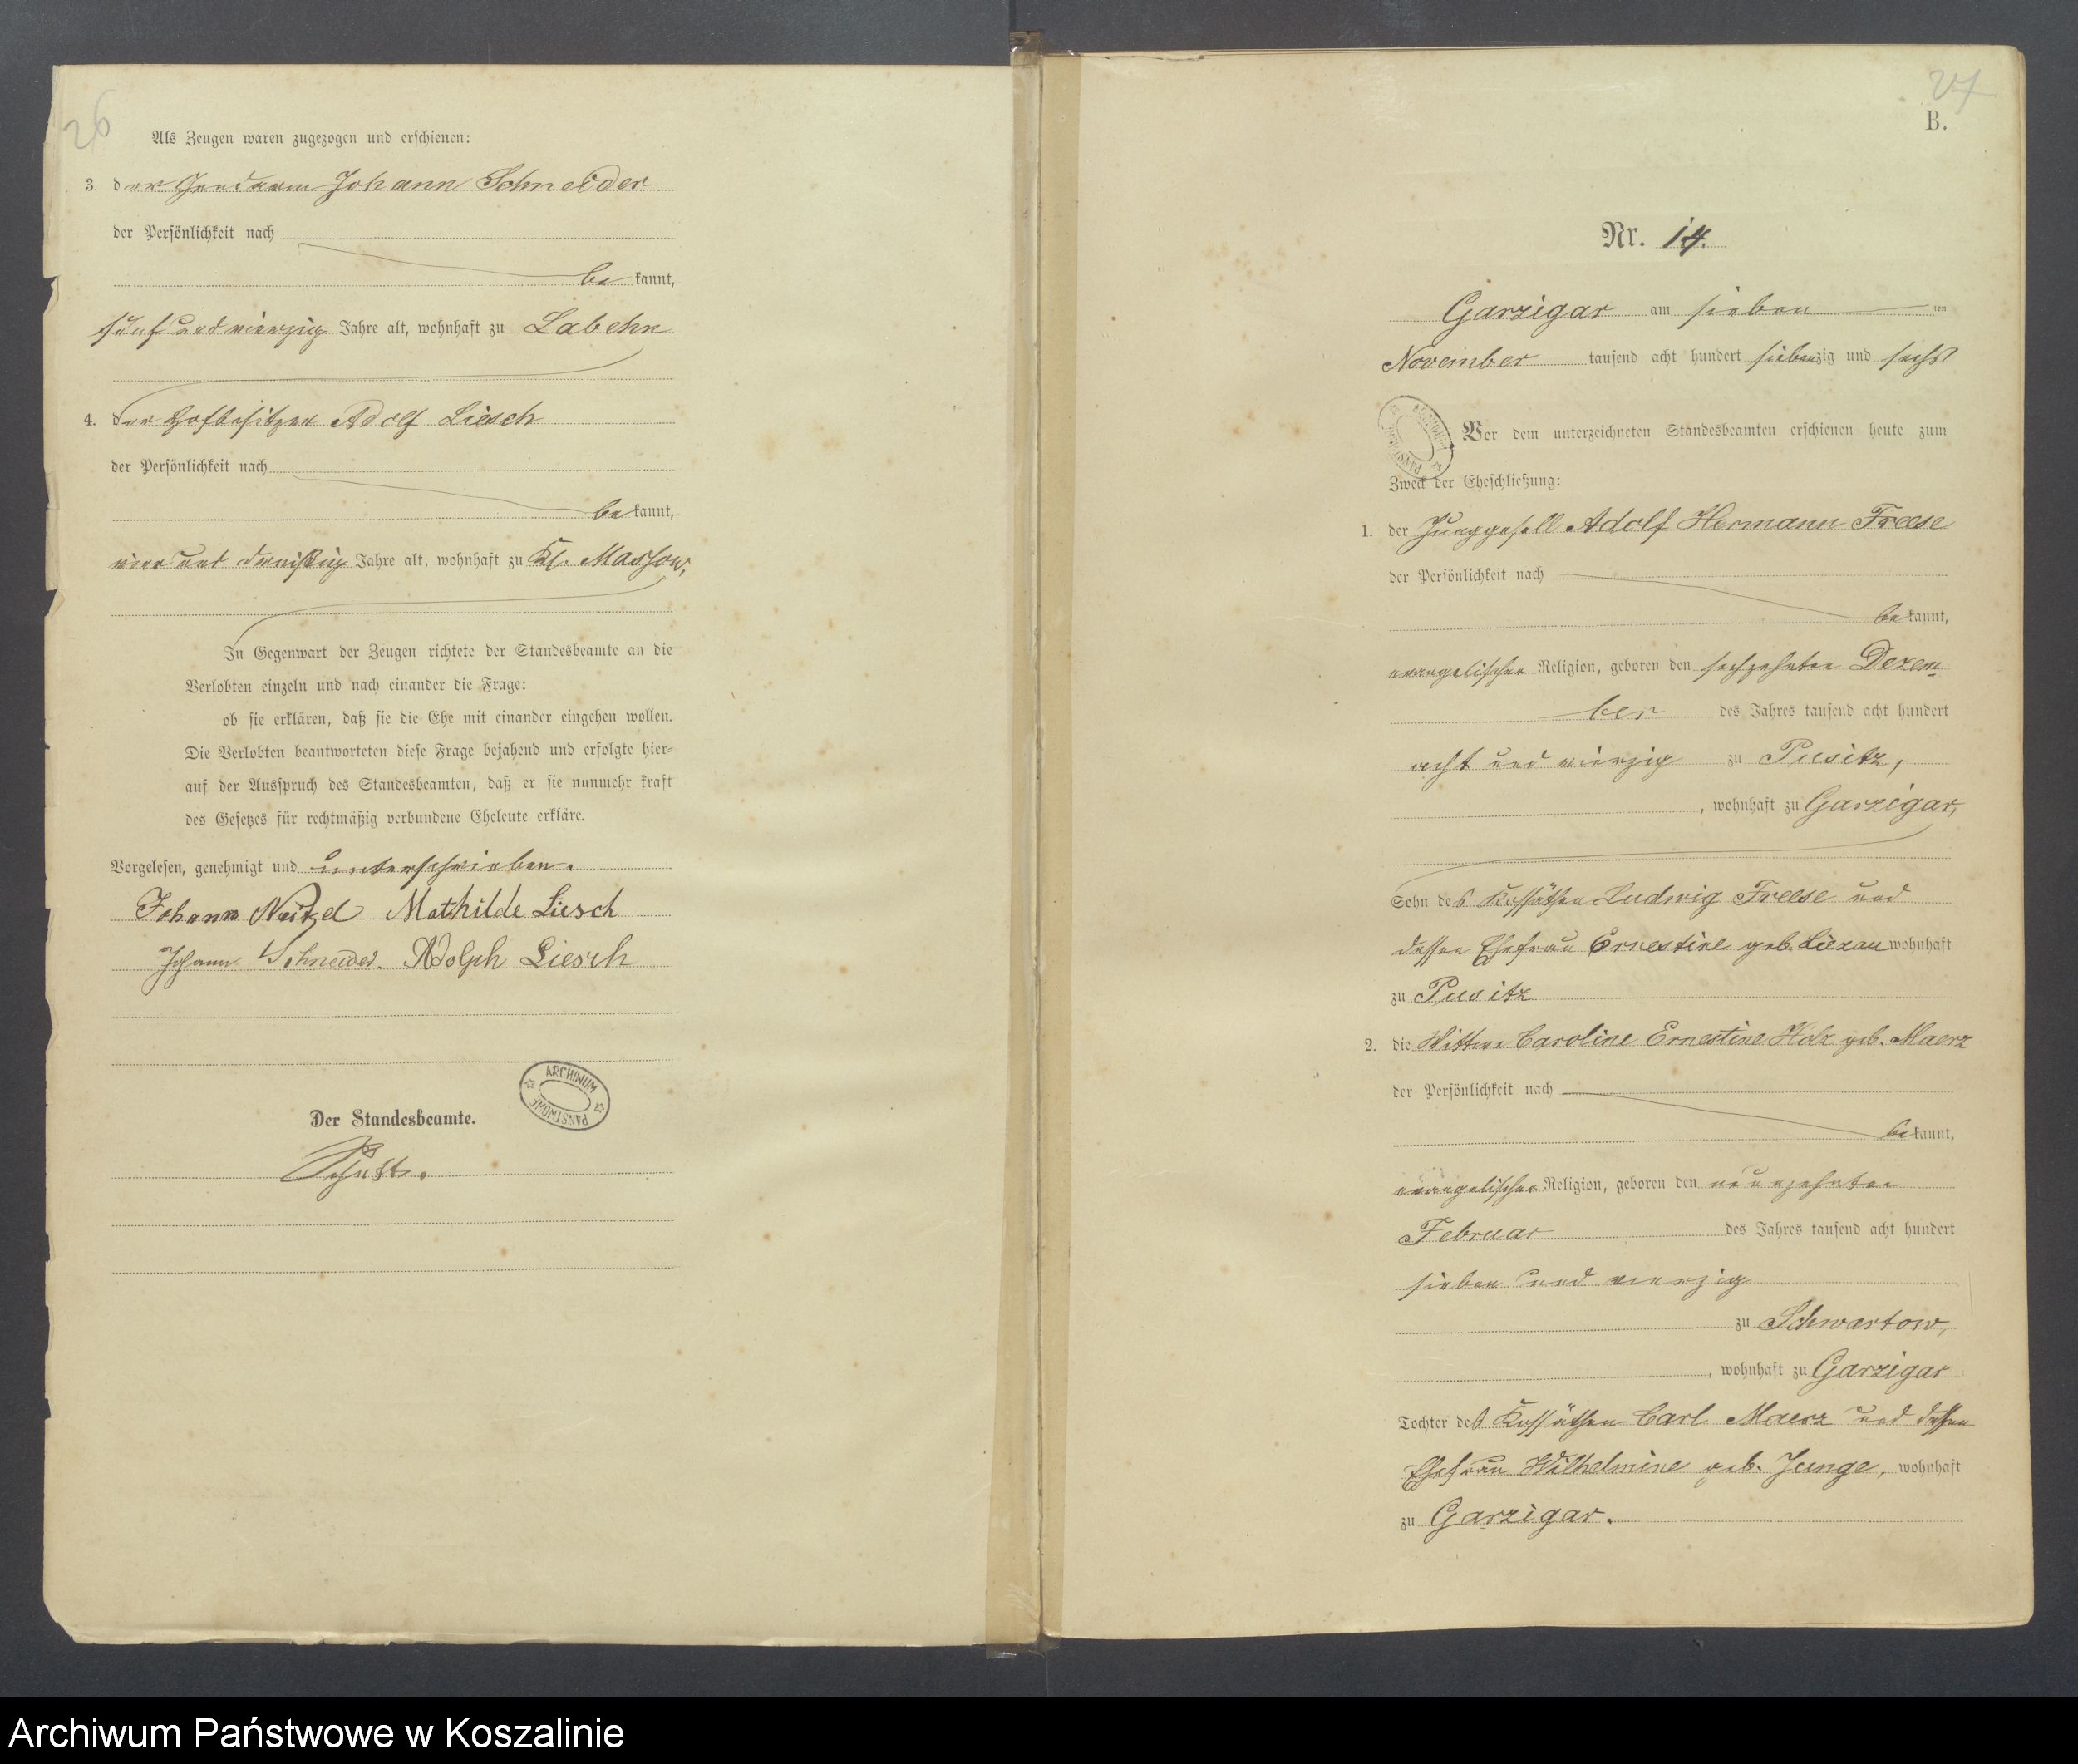 26
Als Zeugen waren zugezogen und erschienen:
3. der Gendarm Johann Schneider
der Persönlichkeit nach
bekannt,
fünf und vierzig Jahre alt, wohnhaft zu Labehn
4. der Hofbesitzer Adolf Liesch
der Persönlichkeit nach
bekannt,
vier und dreißig Jahre alt, wohnhaft zu Kl. Massow,
In Gegenwart der Zeugen richtete der Standesbeamte an die
Verlobten einzeln und nach einander die Frage:
ob sie erklären, daß sie die Ehe mit einander eingehen wollen.
Die Verlobten beantworteten diese Frage bejahend und erfolgte hier-
auf der Ausspruch des Standesbeamten, daß er sie nunmehr kraft
des Gesetzes für rechtmäßig verbundene Eheleute erkläre.
Vorgelesen, genehmigt und unterschrieben.
Johann Neitzel Mathilde Liesch
Johann Schneider. Adolph Liesch
ARCHIWUM PAŃSTWOWE
Der Standesbeamte.
27
B.
Nr. 14.
Garzigar am sieben ten
November tausend acht hundert siebenzig und sechs
ARCHIWUM PAŃSTWOWE
Vor dem unterzeichneten Standesbeamten erschienen heute zum
Zweck der Eheschließung:
1. der Junggesell Adolf Hermann Freese
der Persönlichkeit nach
bekannt,
evangelischer Religion, geboren den sechzehnten Dezem-
ber des Jahres tausend acht hundert
acht und vierzig zu Pusitz,
, wohnhaft zu Garzigar,
Sohn des Kossäthen Ludwig Freese und
dessen Ehefrau Ernestine geb. Liezau wohnhaft
zu Pusitz
2. die Wittwe Caroline Ernestine Holz geb. Maerz
der Persönlichkeit nach
bekannt,
evangelischer Religion, geboren den neunzehnten
Februar des Jahres tausend acht hundert
sieben und vierzig
zu Schwartow,
, wohnhaft zu Garzigar
Tochter des Kossäthen Carl Maerz und dessen
Ehefrau Wilhelmine geb. Junge, wohnhaft
zu Garzigar.
Archiwum Państwowe w Koszalinie